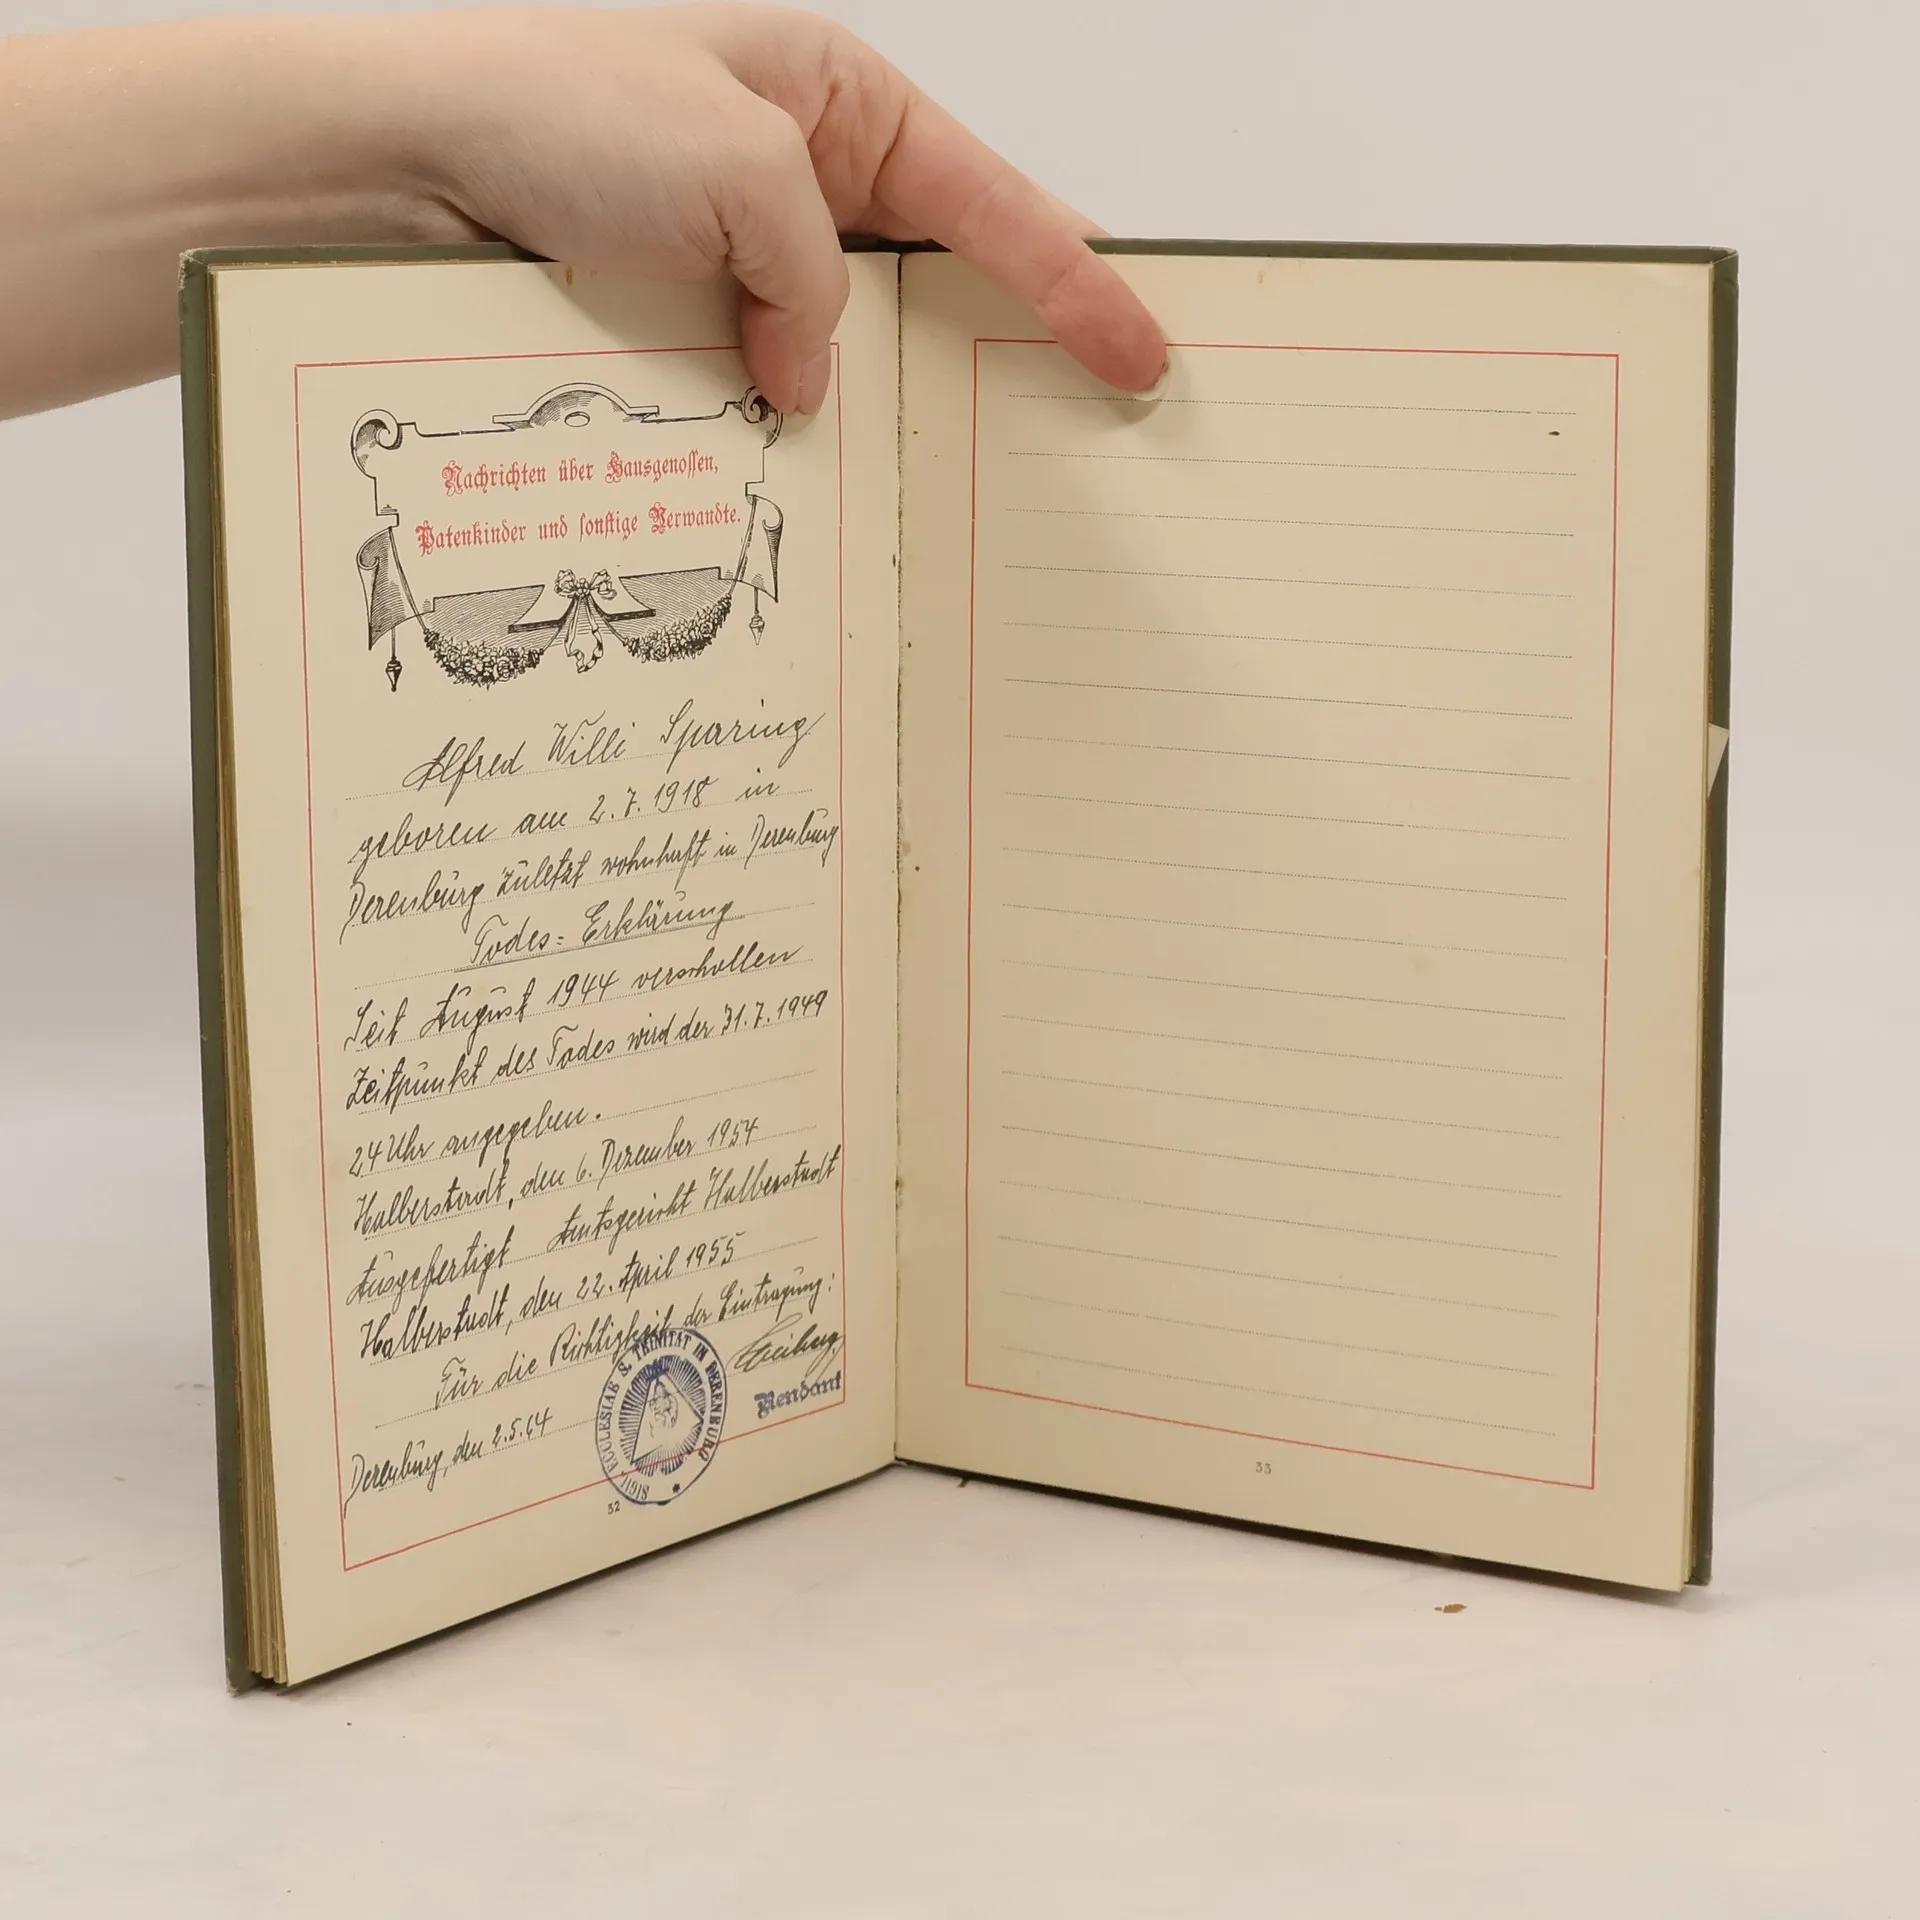 Nachrichten über Hausgenossen,
Patenkinder und sonstige Verwandte.
Alfred Willi Sparing
geboren am 2.7.1918 in
Derenburg zuletzt wohnhaft in Derenburg
Todes-Erklärung
Seit August 1944 verschollen
Zeitpunkt des Todes wird der 31.7.1949
24 Uhr angegeben.
Halberstadt, den 6. Dezember 1954
Ausgefertigt Amtsgericht Halberstadt
Halberstadt, den 22. April 1955
Für die Richtigkeit der Eintragung:
Rendant
Derenburg, den 2.5.64
SIGIL. ECCLESIAE S. TRINITAT IN DERENBURG *
32
33